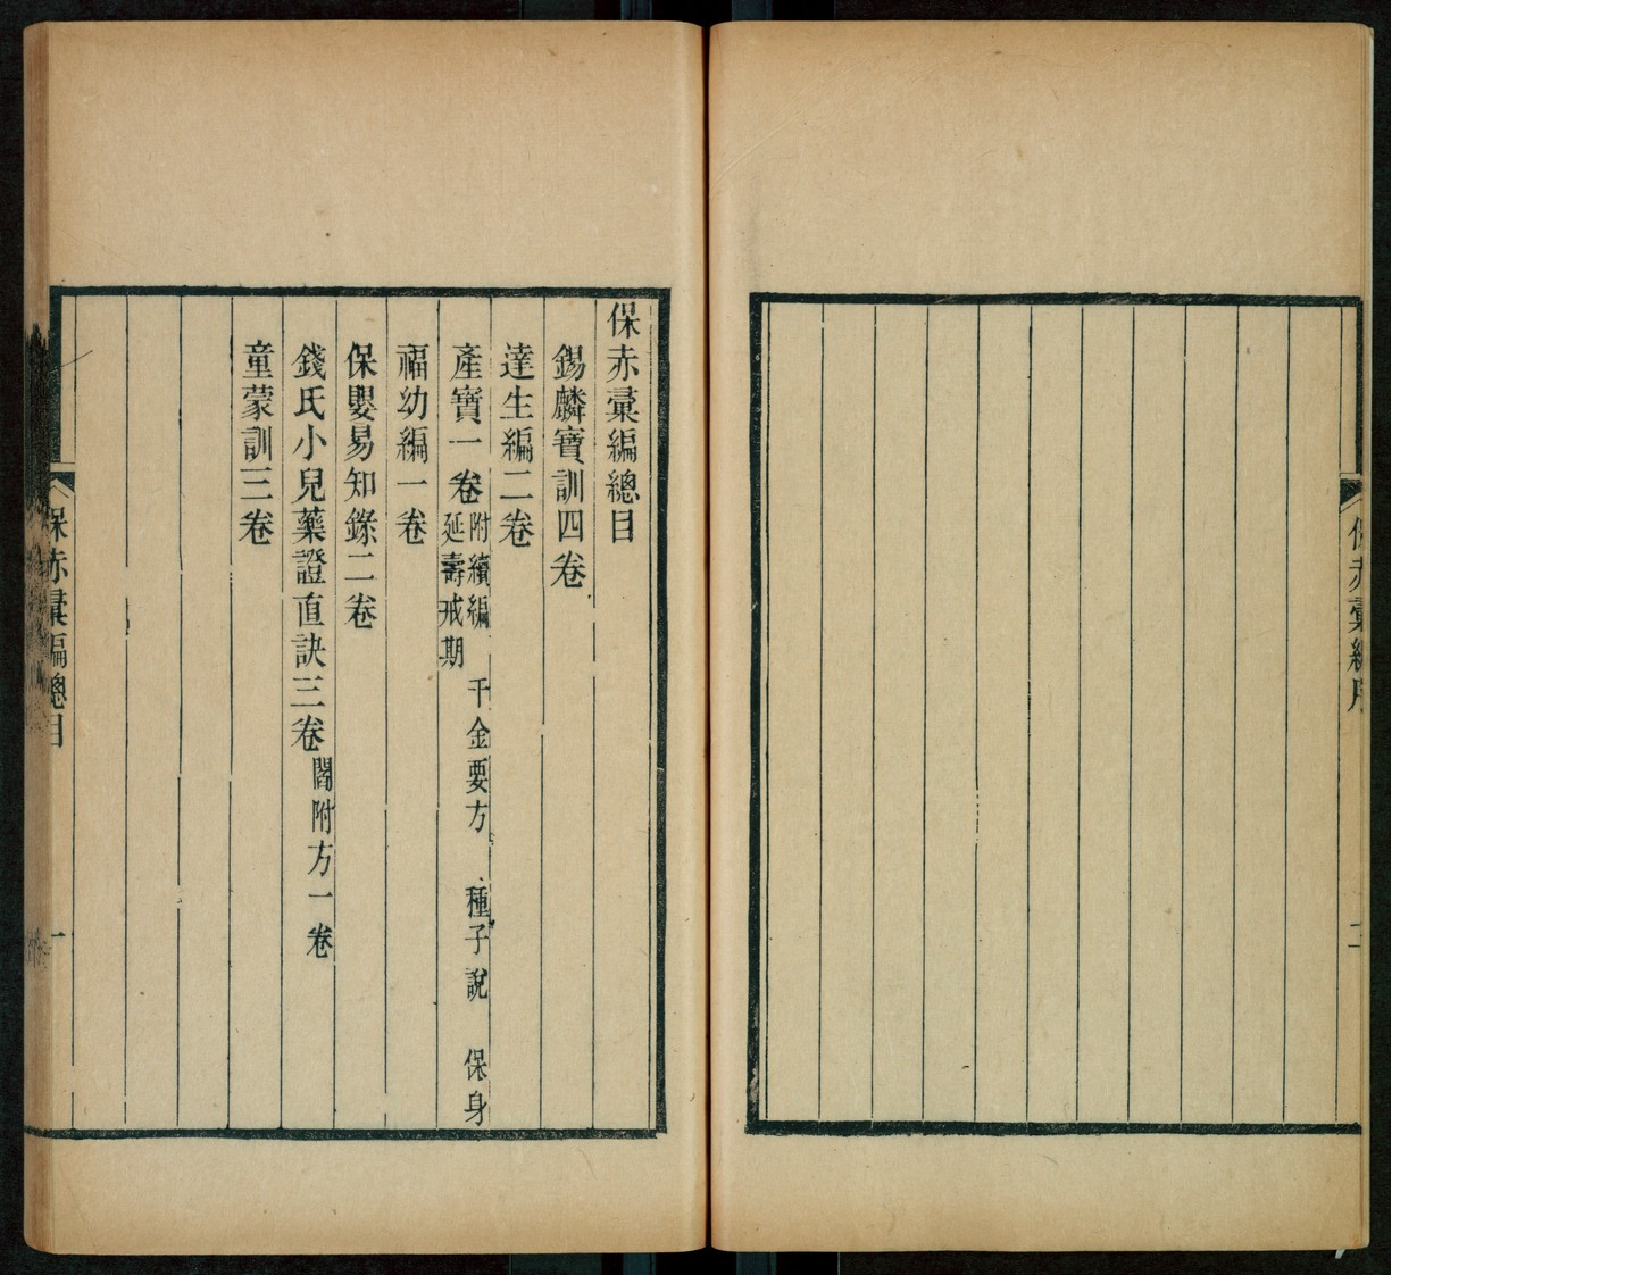 保赤彙編序
二
保赤彙編總目
錫麟寶訓四卷
達生編二卷
產寶一卷附續編 千金要方 種子說 保身
延壽戒期
福幼編一卷
保嬰易知錄二卷
錢氏小兒藥證直訣三卷閻附方一卷
童蒙訓三卷
保赤彙編總目
一